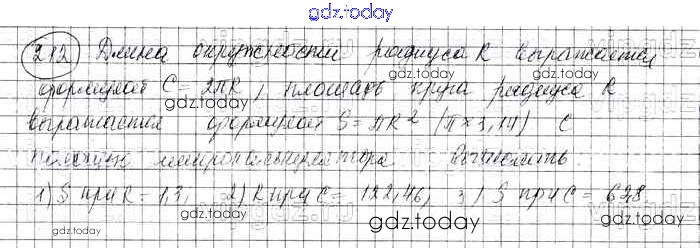 gdz.today
212 Длина окружности радиуса R выражается
gdz.today
формулой C = 2πR, площадь круга радиуса R
gdz.today
gdz.today
выражается формулой S = πR² (π≈3,14) С
помощью микрокалькулятора вычислить
gdz.today
1) S при R = 1,3, 2) R при C = 122,46, 3) S при C = 628
gdz.today